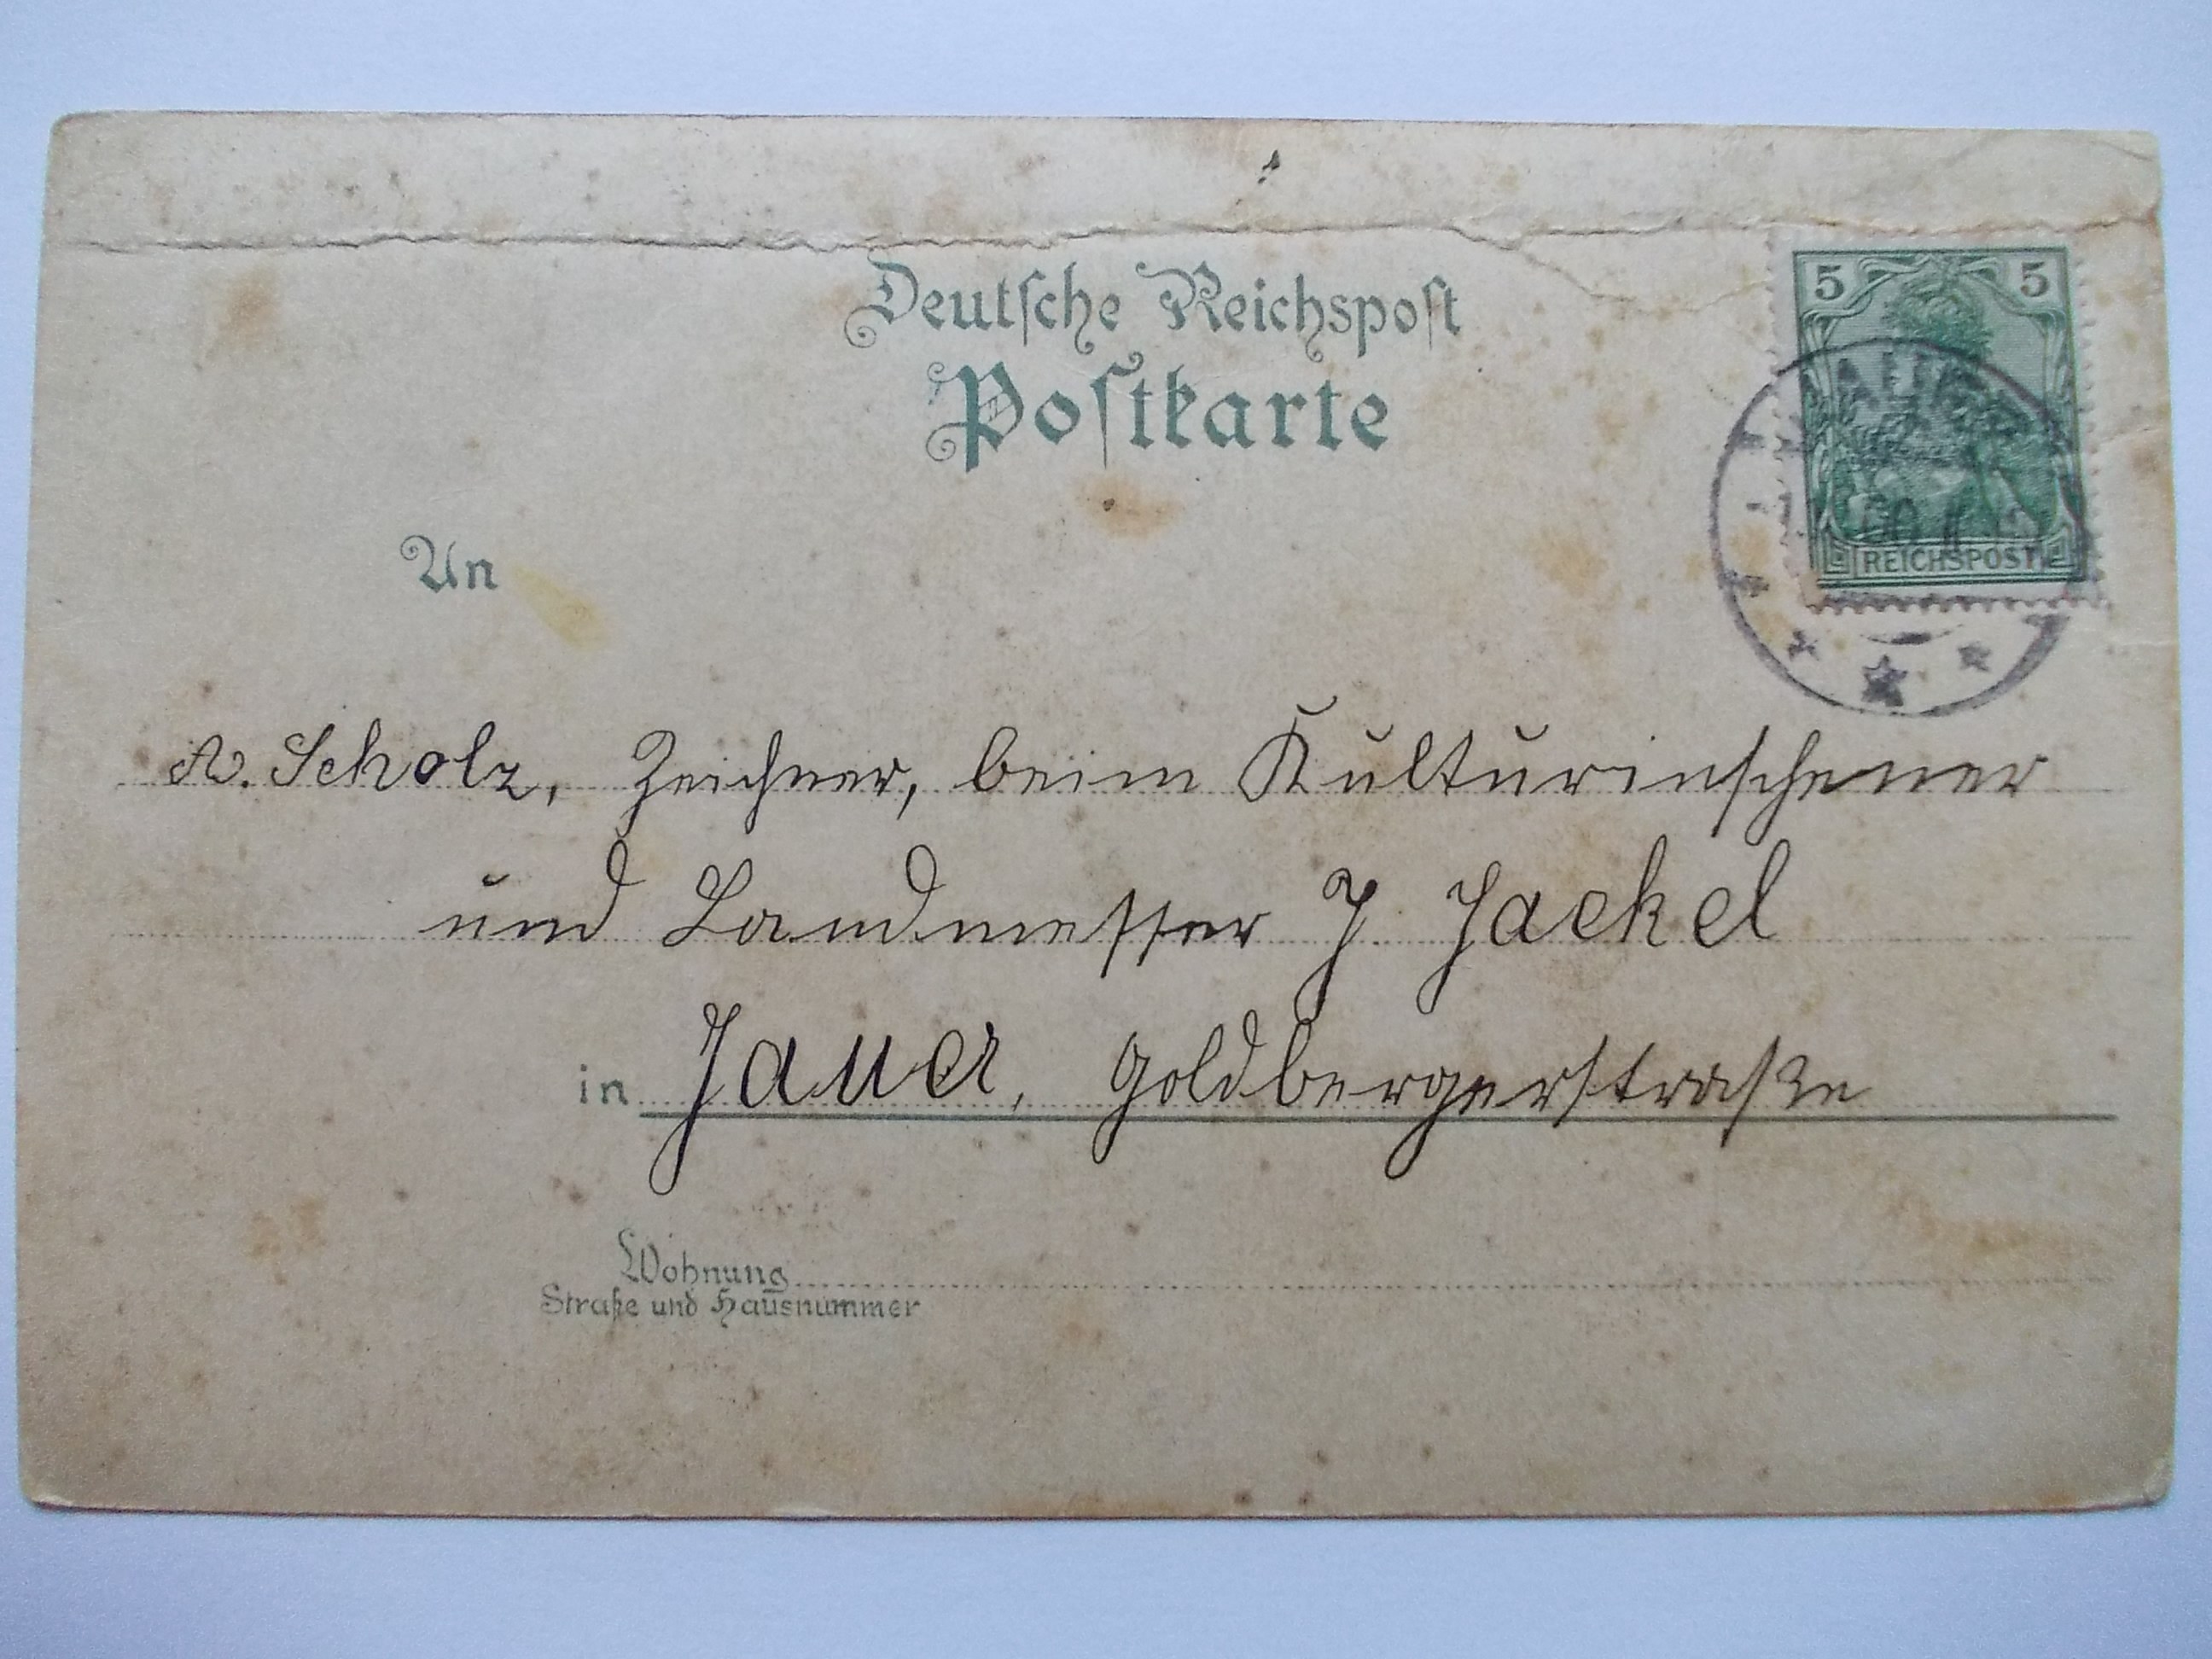 Deutsche Reichspost
Postkarte
5 5
REICHSPOST
An
A. Scholz, Zeichner, beim
und Landmesser J. Jackel
in Jauer, Goldbergerstraße
Wohnung
Straße und Hausnummer